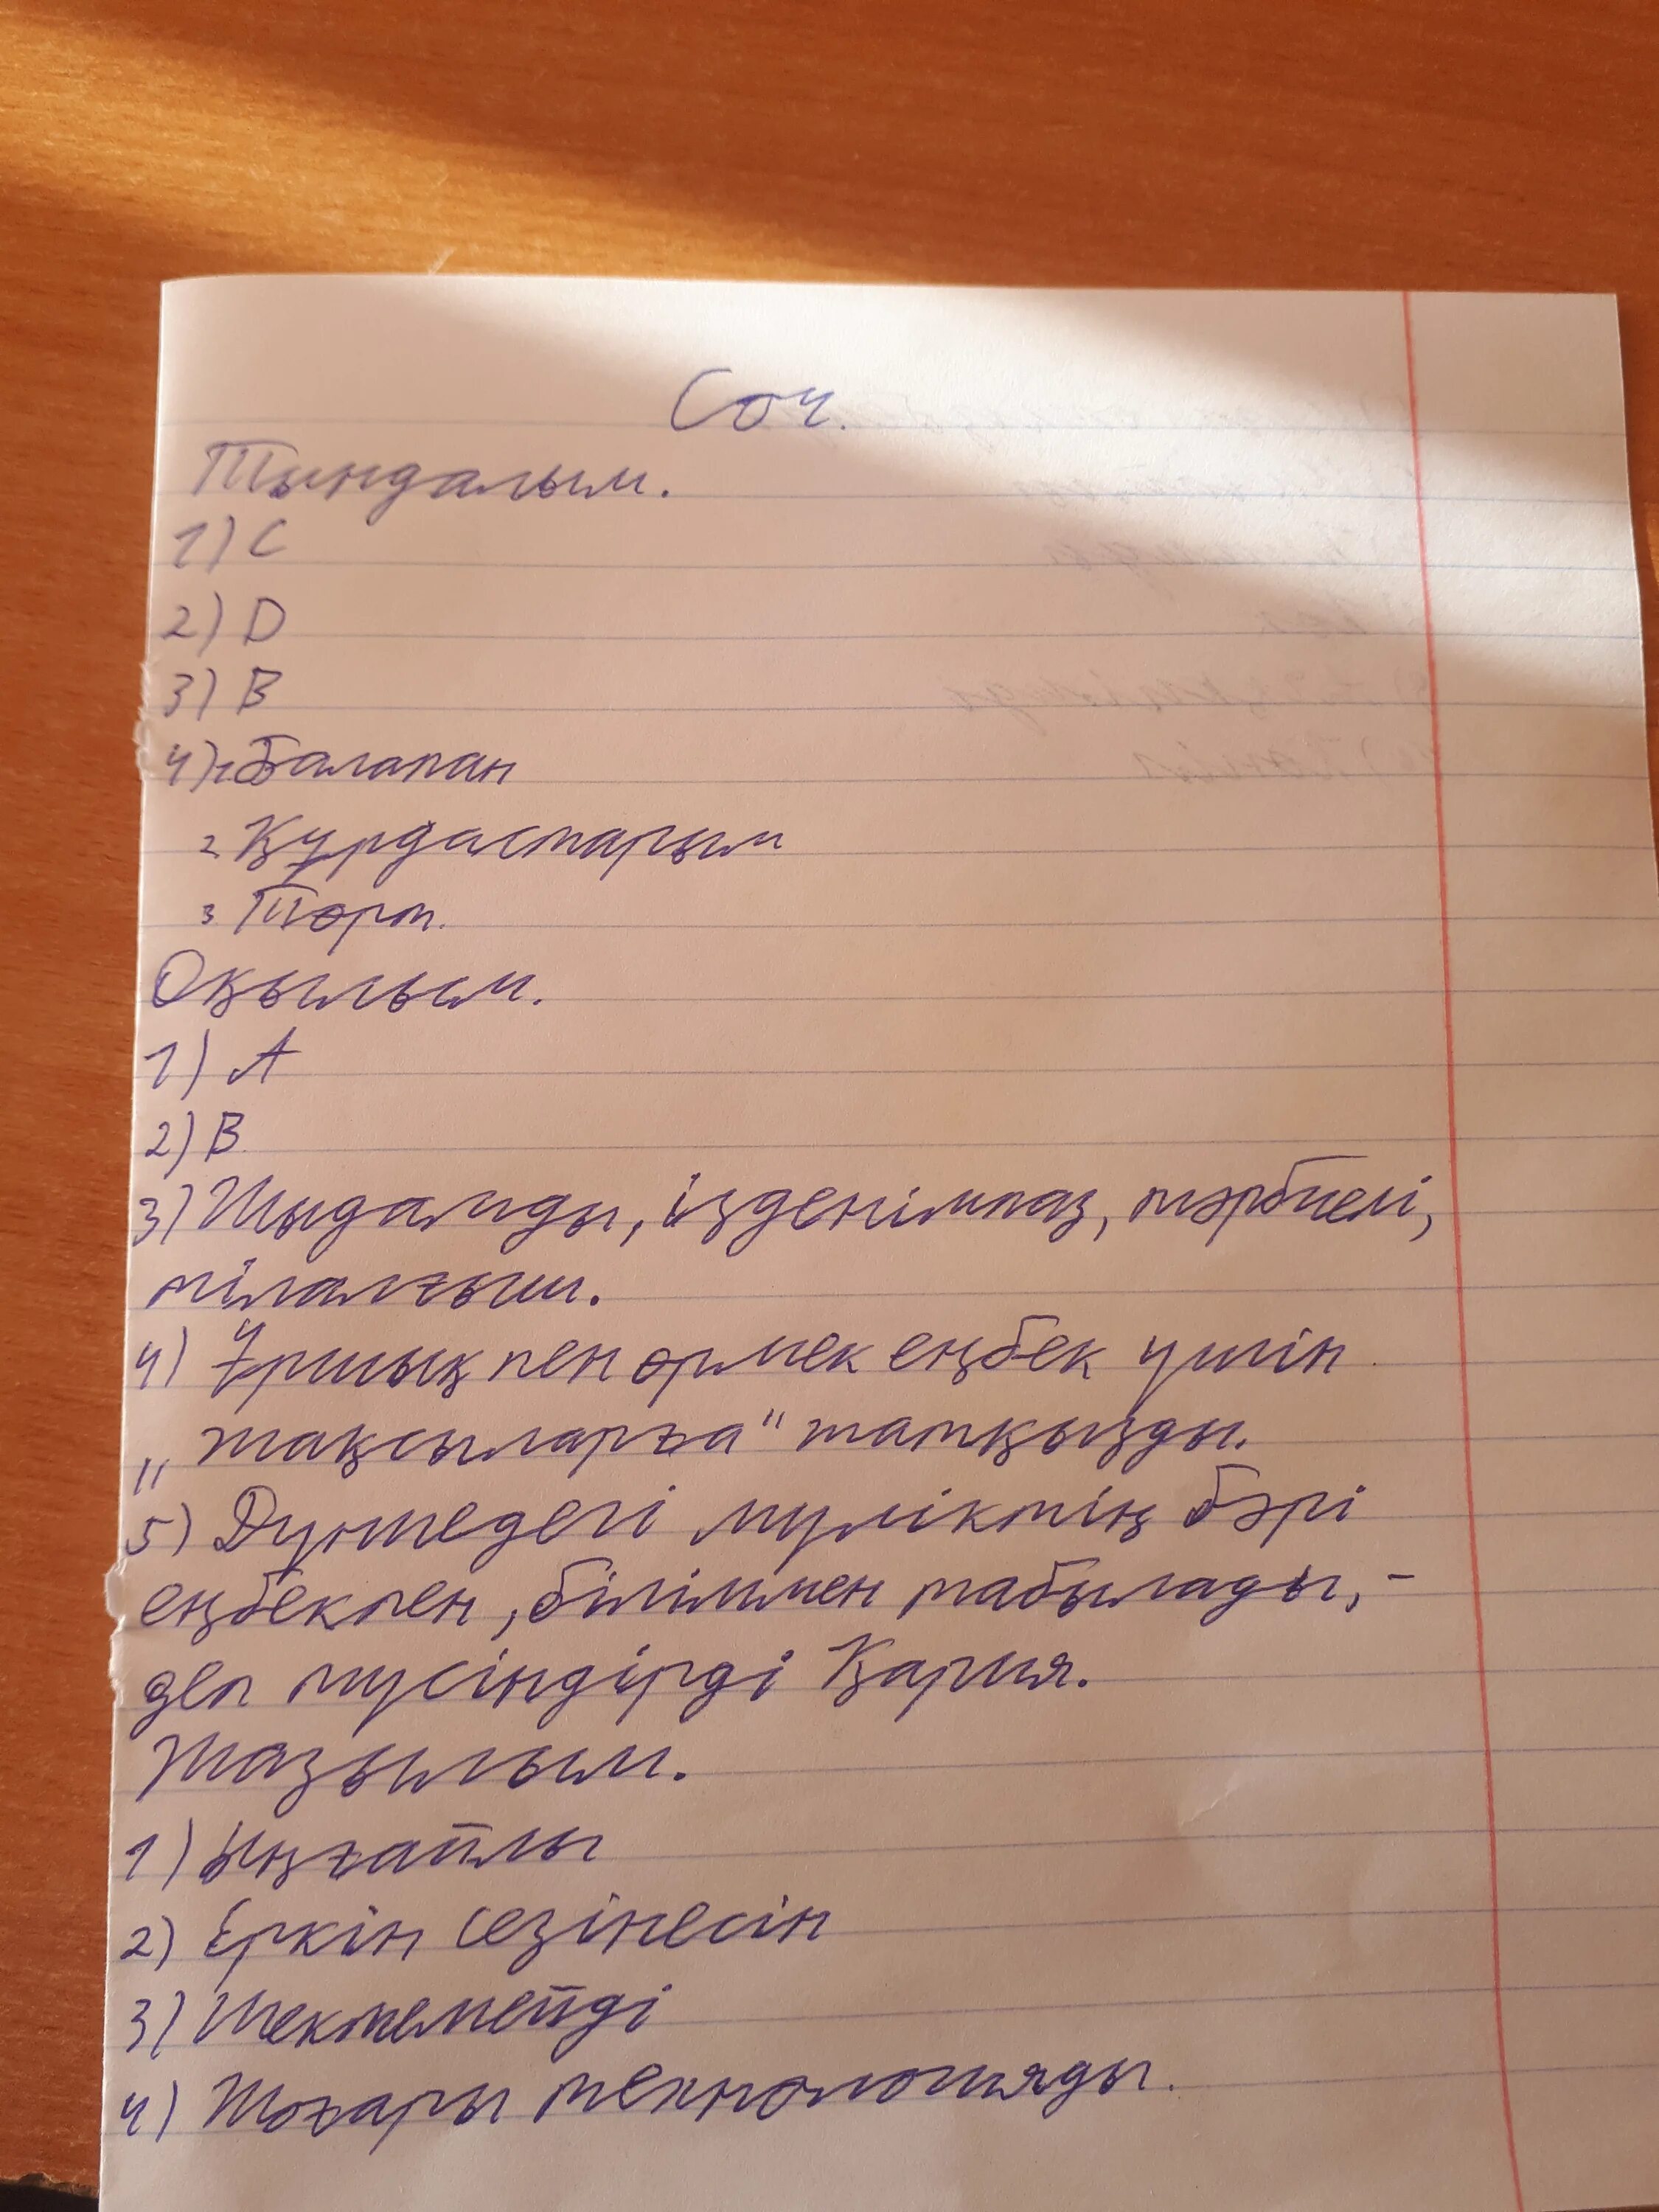 Соч.
Тындалым.
1) C
2) D
3) B
4) 1. Балапан
2. Құрдастарым
3 Төрт.
Оқылым.
1) A
2) B
3) Шыдамды, ізденімпаз, тәрбиелі,
тілалғыш.
4) Ұршық пен өрмек еңбек үшін
„жақсыларға" жатқызды.
5) Дүниедегі мүліктің бәрі
еңбекпен, біліммен табылады, -
деп түсіндірді Қария.
Жазылым.
1) Ыңғайлы
2) Еркін сезінесін
3) Шектемейді
4) Жоғары технологиялды.